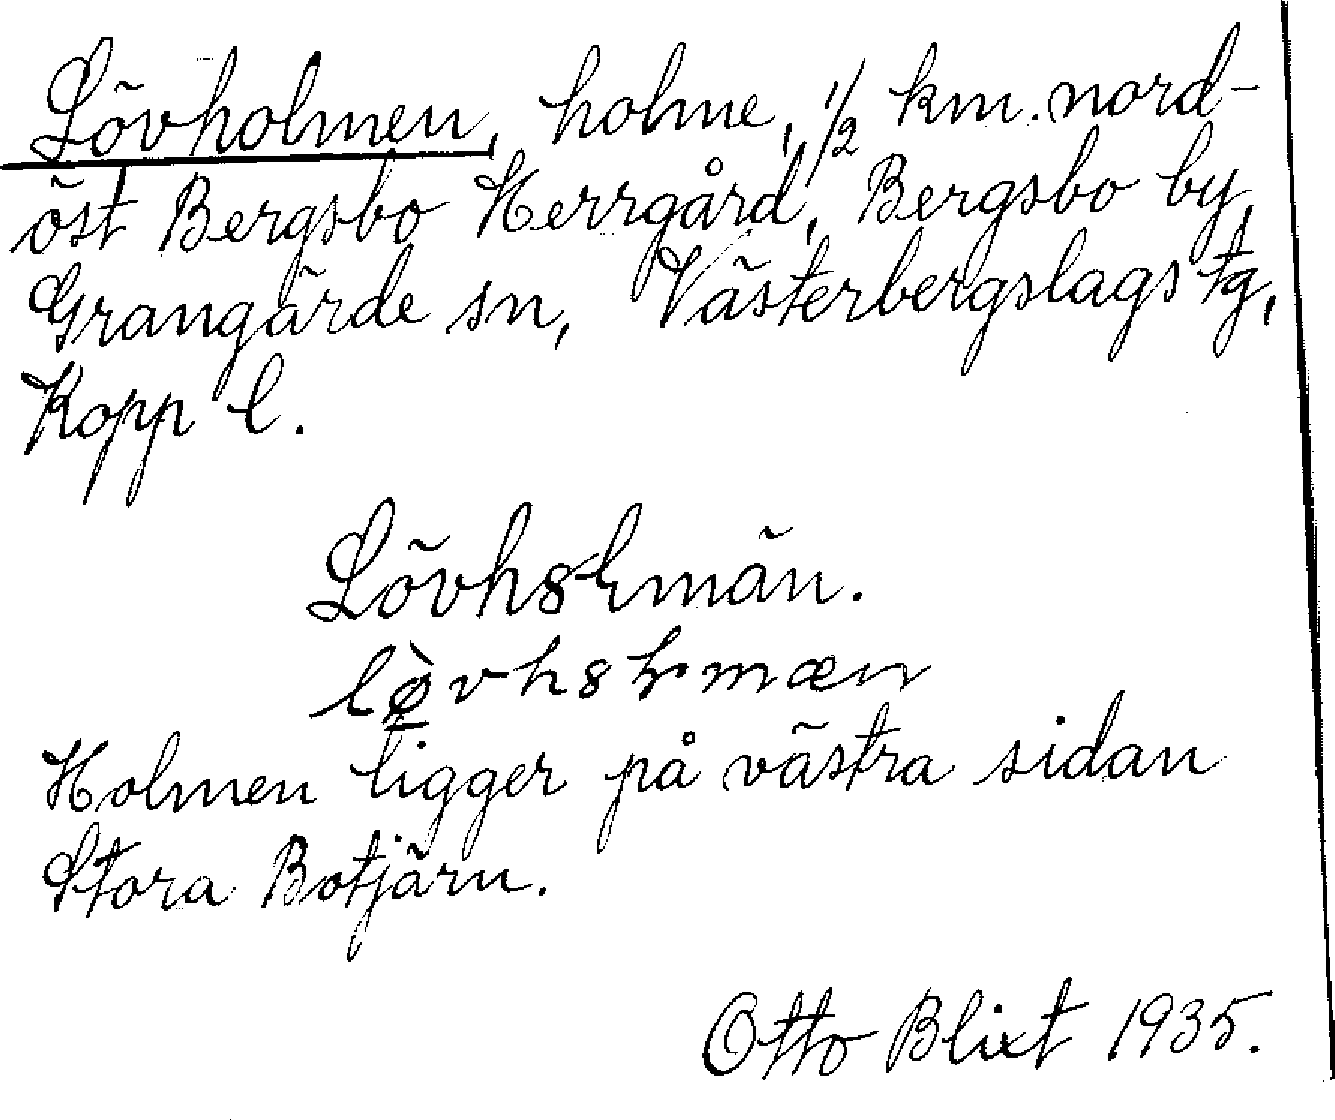 Lövholmen, holme, 1/2 km. nord-
öst Bergsbo Herrgård, Bergsbo by,
Grangärde sn, Västerbergslags tg,
Kopp l.
Holmen ligger på västra sidan
Stora Botjärn.
Otto Blixt 1935.